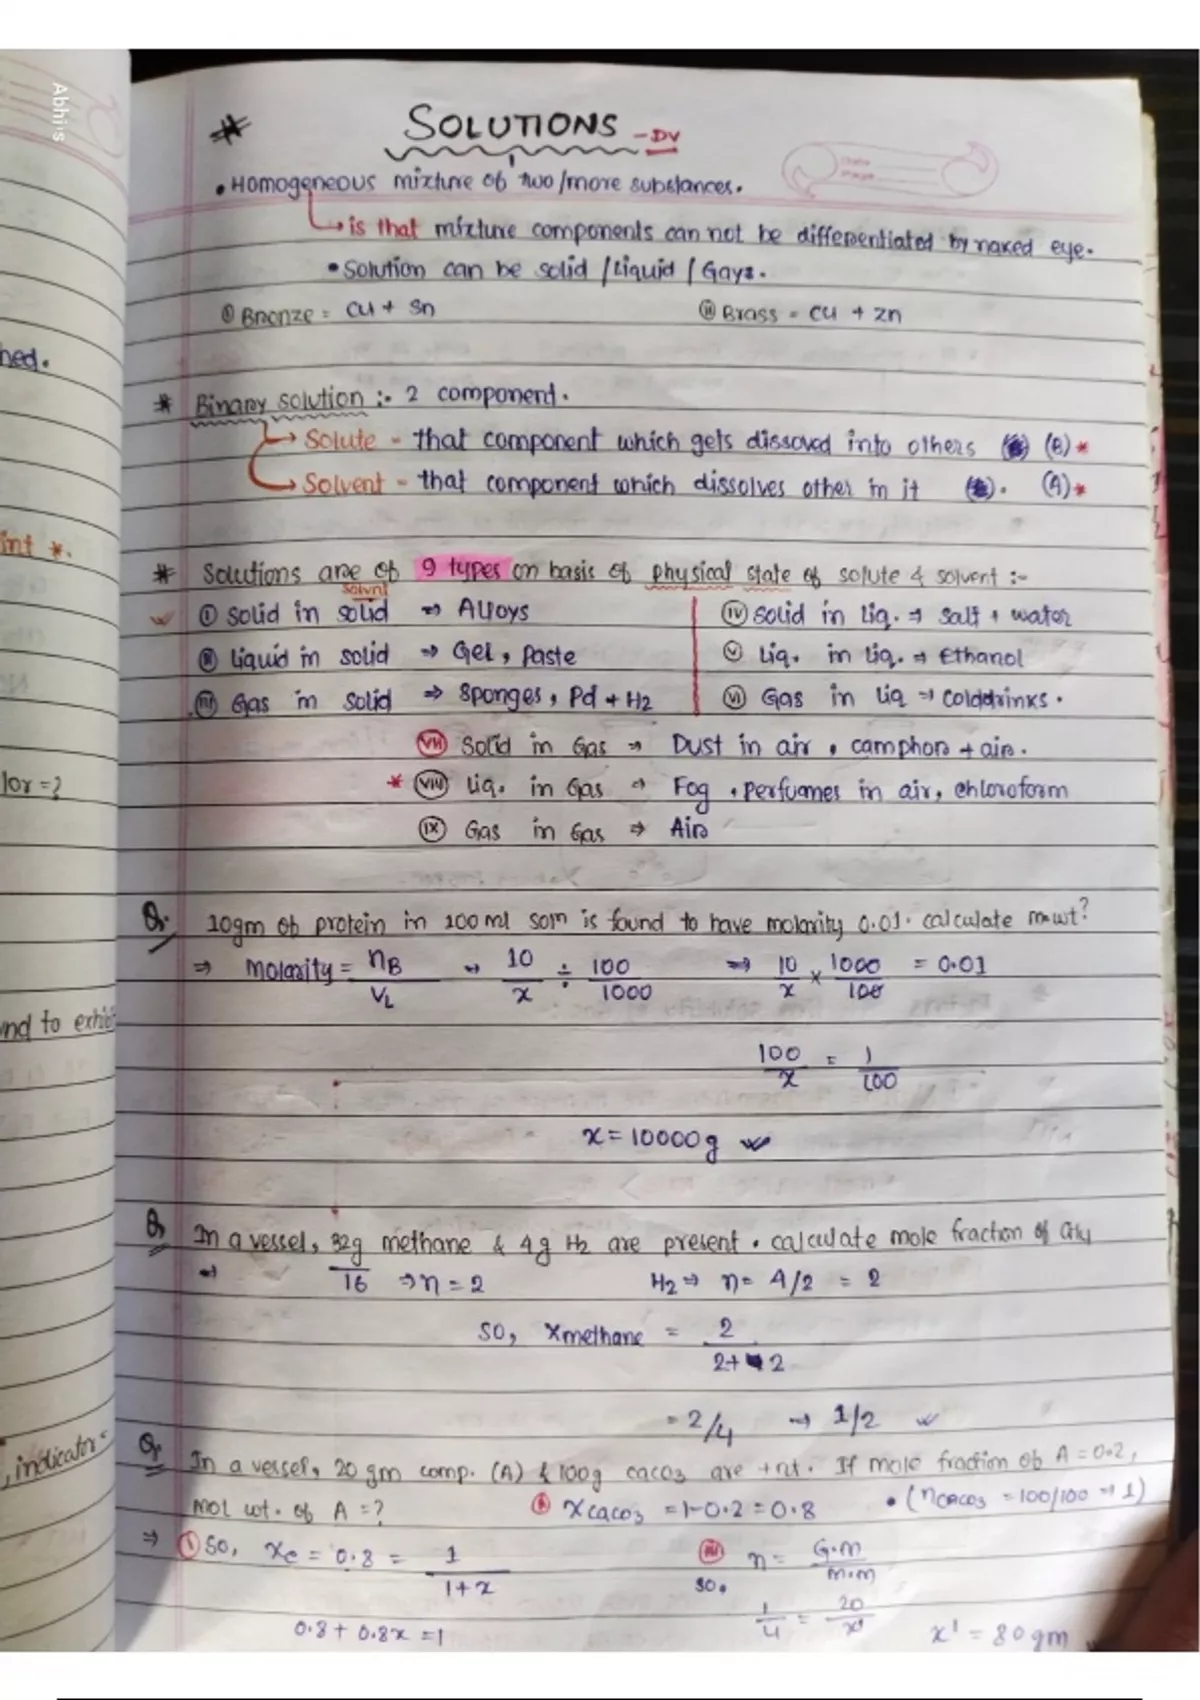 Abhi's
SOLUTIONS - DV
• Homogeneous mixture of two/more substances.
↳ is that mixture components can not be differentiated by naked eye.
• Solution can be solid / Liquid / Gays.
ⓘ Bronze = Cu + Sn   ⓘⓘ Brass = Cu + Zn
hed.
* Binary solution :- 2 component.
→ Solute - that component which gets dissoved into others (B)*
→ Solvent - that component which dissolves other in it . (A)*
int *.
* Solutions are of 9 types on basis of physical state of solute & solvent :-
solvnt
① Solid in solid ⇒ Alloys   (iv) Solid in Liq. ⇒ Salt + water
(ii) Liquid in solid ⇒ Gel, Paste   (v) Liq. in Liq. ⇒ Ethanol
(iii) Gas in solid ⇒ Sponges, Pd + H2   (vi) Gas in Liq ⇒ colddrinks.
(vii) Solid in Gas ⇒ Dust in air, camphor + air.
lor = ?
* (viii) Liq. in Gas ⇒ Fog, perfumes in air, chloroform
(ix) Gas in Gas ⇒ Air
Q. 10gm of protein in 100ml som is found to have molarity 0.01. calculate m.wt?
⇒ Molarity = nB/VL ⇒ 10/x ÷ 100/1000 ⇒ 10/x × 1000/100 = 0.01
nd to exhib
100/x = 1/100
x = 10000g
Q. In a vessel, 32g methane & 4g H2 are present. calculate mole fraction of CH4
⇒ /16 ⇒ n = 2   H2 ⇒ n = 4/2 = 2
So, xmethane = 2/2+2
= 2/4 ⇒ 1/2
, indicator =
Q. In a vessel, 20gm comp. (A) & 100g CaCO3 are +nt. If mole fraction of A = 0.2,
mol wt. of A = ?   xCaCO3 = 1-0.2 = 0.8   • (nCaCO3 = 100/100 ⇒ 1)
⇒ (i) So, xc = 0.8 = 1/1+x   (iii) n = G.m/m.m
so, 1/4 = 20/x'   x' = 80gm
0.8 + 0.8x = 1